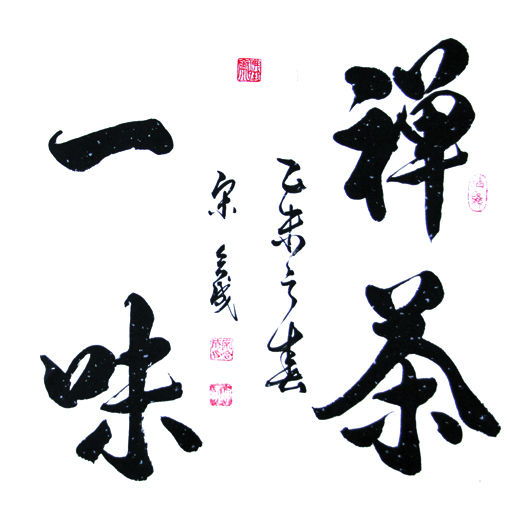 禅茶
一味
乙未之春
宋